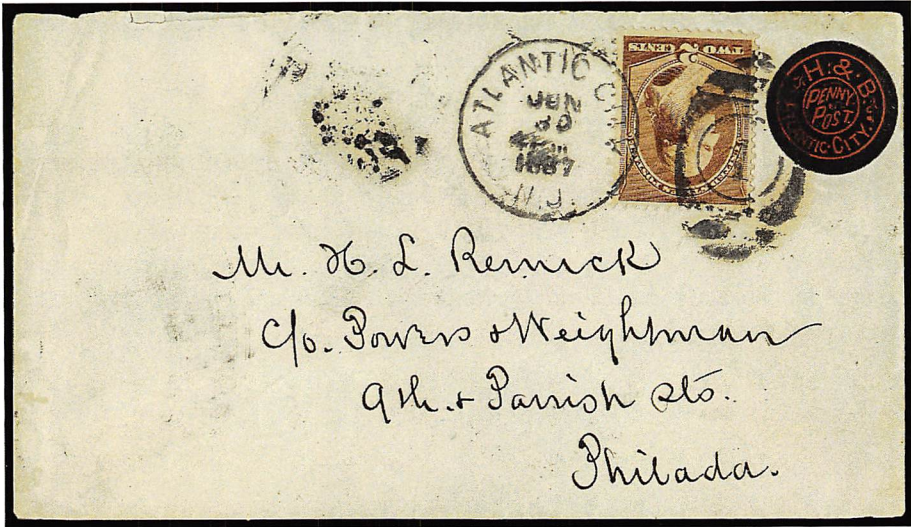 ATLANTIC CITY
JUN
30
1887
N.J.
TWO 2 CENTS
& H. & B.
PENNY
POST.
ATLANTIC-CITY.
Mr. H. L. Remick
c/o. Powers & Weightman
9th. & Parrish Sts.
Philada.